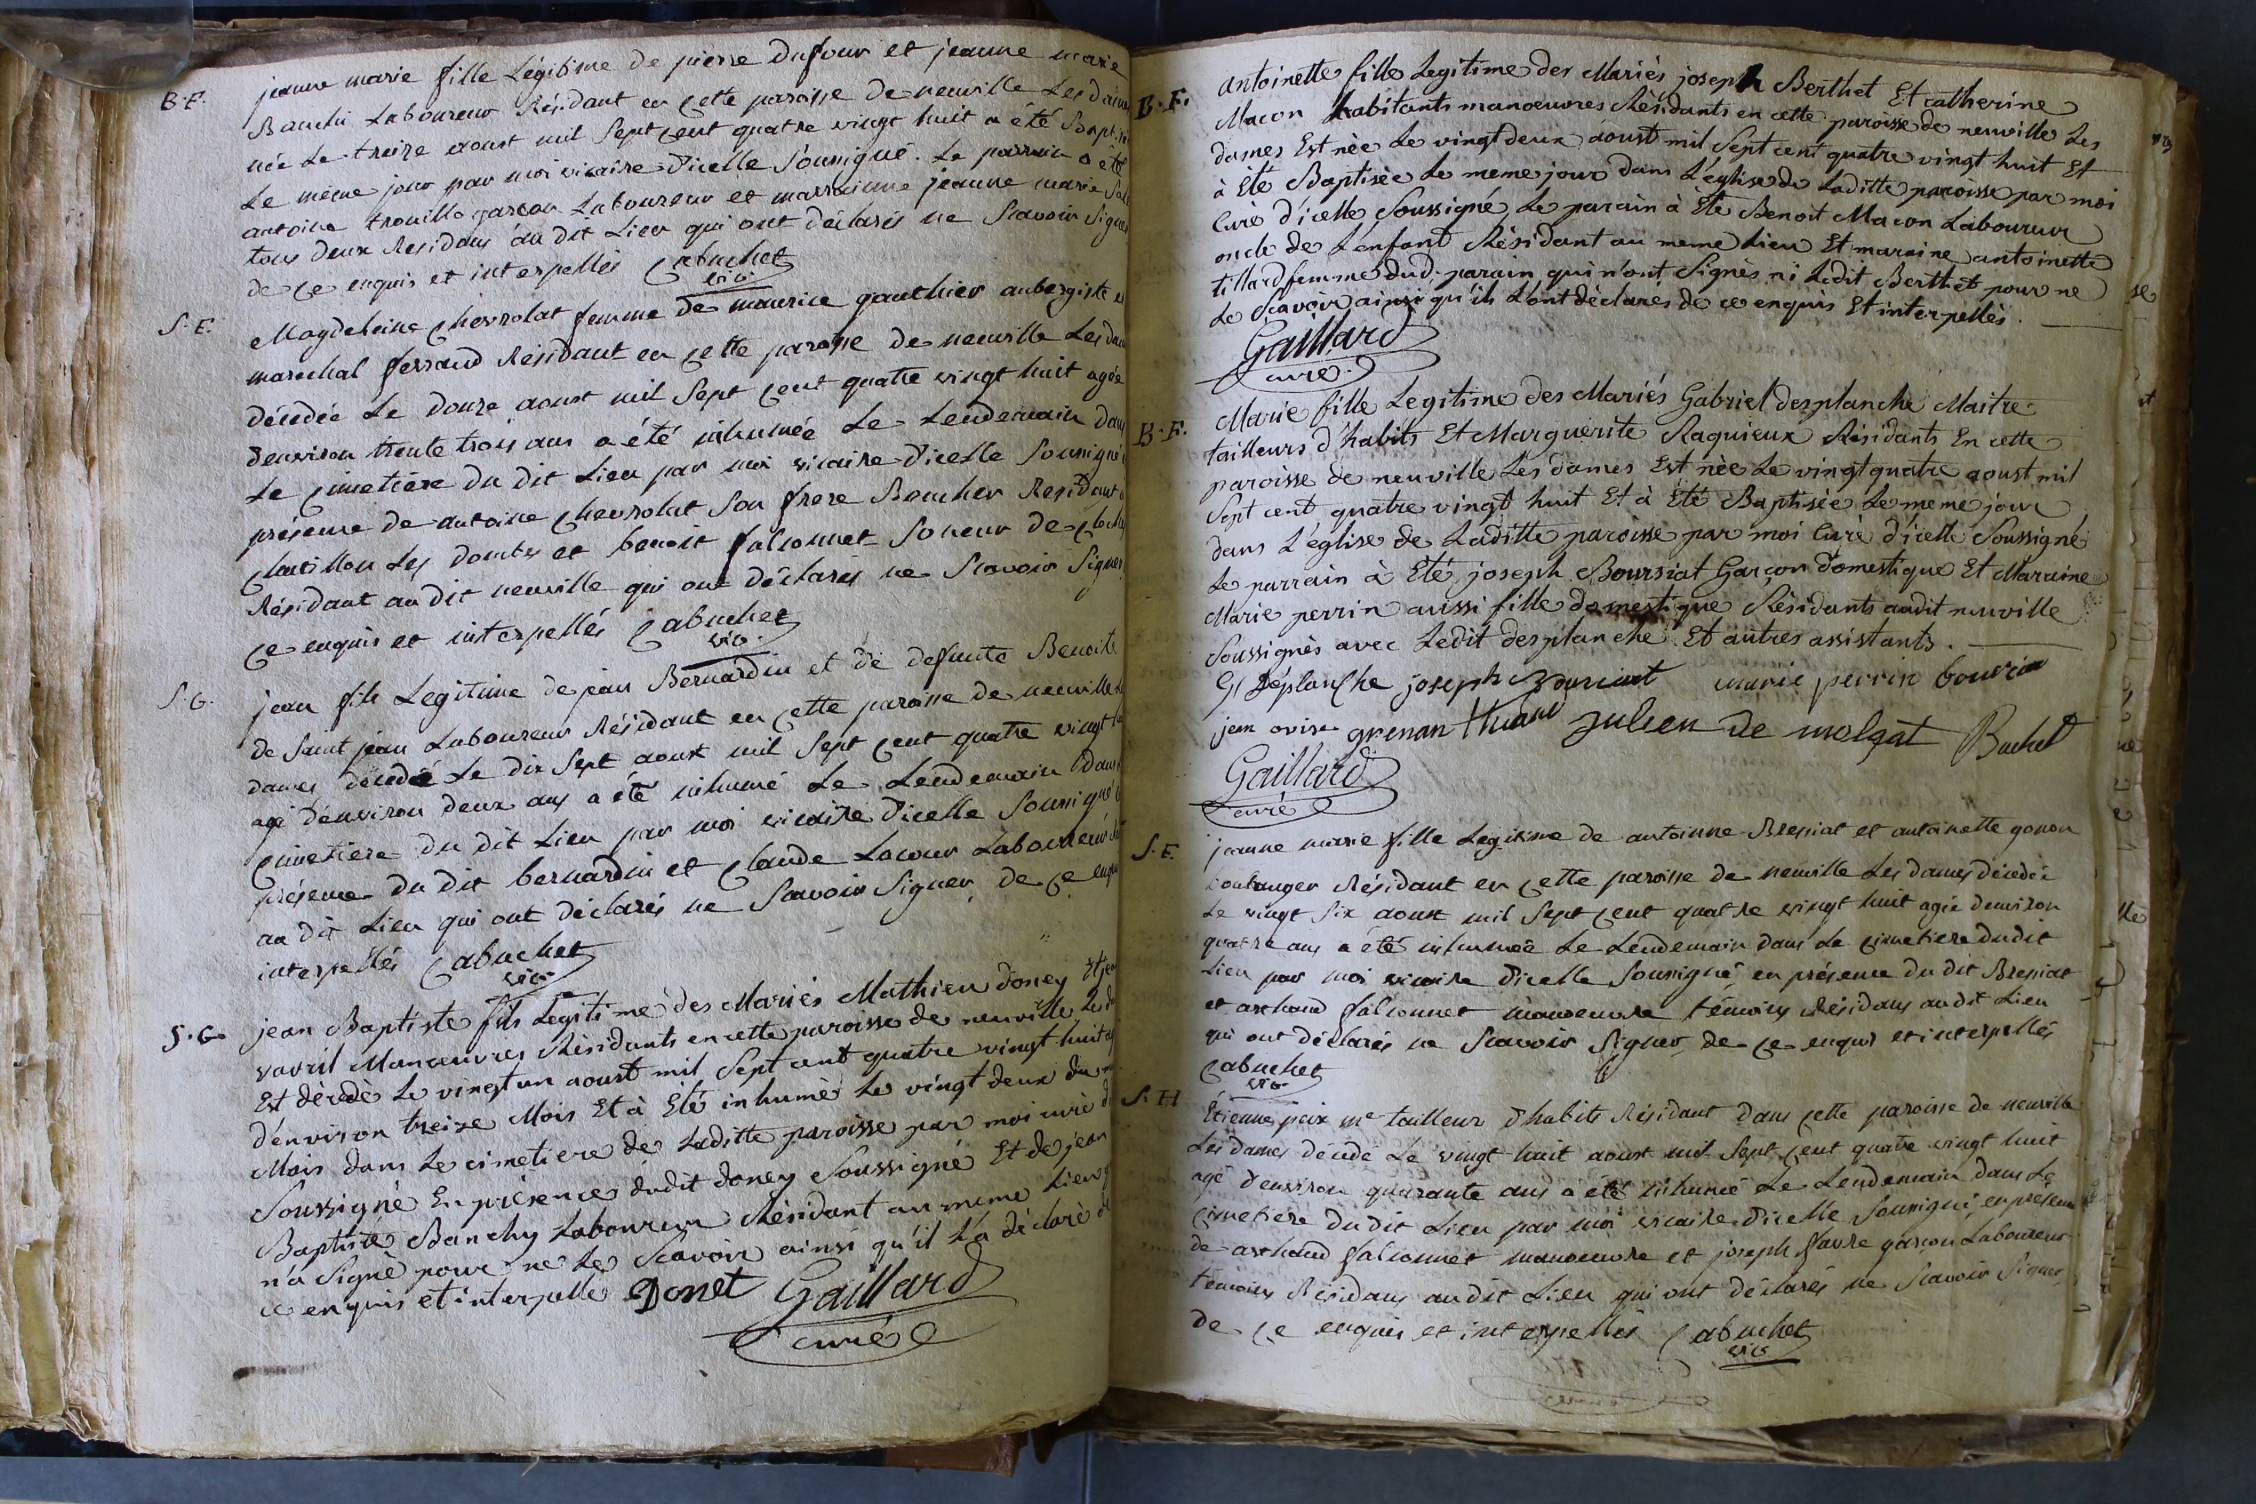 B.F.
jeanne marie fille Légitime de pierre dufour et jeanne marie
Banchi Laboureur Résidant en cette paroisse de neuville Les dames
née Le treize aoust mil Sept cent quatre vingt huit a été Baptisée
Le même jour par moi vicaire d'icelle Soussigné. Le parrain a été
antoine trouillo garçon Laboureur et marrainne jeanne marie
tous deux Residans au dit Lieu qui ont déclarés ne Scavoir Signer
de ce enquis et interpellés Cabuchet
vic.
S.F.
Magdeleine Chevrolat femme de maurice gauthier aubergiste et
marechal ferrand Résidant en cette paroisse de neuville Les dames
décédée Le douze aoust mil Sept cent quatre vingt huit agée
d'environ trente trois ans a été inhumée Le Lendemain dans
Le cimetière du dit Lieu par moi vicaire d'icelle Soussigné
présence de antoine Chevrolat Son frere Boucher Residant
Chatillon Les dombes et benoit falconnet Soneur de Cloches
Résidant au dit neuville qui ont déclarés ne Scavoir Signer
ce enquis et interpellés Cabuchet
vic.
S.G.
jean fils Legitime de jean Bernardin et de defunte Benoite
de Saint jean Laboureur Résidant en cette paroisse de neuville
dames décédé Le dix Sept aoust mil Sept cent quatre vingt
agé d'environ deux ans a été inhumé Le Lendemain dans
cimetiere du dit Lieu par moi vicaire d'icelle Soussigné
présence du dit bernardin et Claude Lacour Laboureur
au dit Lieu qui ont déclarés ne Scavoir Signer, de ce
interpellés Cabuchet
vic.
S.G.
jean Baptiste fils Legitime des Mariés Mathieu doney Et
vavril Manoeuvres Résidants en cette paroisse de neuville Les
Est décédé Le vingt un aoust mil Sept cent quatre vingt huit
d'environ treize Mois Et à Eté inhumé Le vingt deux du
Mois dans Le cimetiere de Laditte paroisse par moi curé
Soussigné En présence dudit doney Soussigné Et de jean
Baptiste Banchy Laboureur Résidant au meme Lieu
n'a Signé pour ne Le Scavoir ainsi qu'il L'a déclaré
ce enquis et interpellé Donet Gaillard
curé
B.F.
antoinette fille Legitime des Mariés joseph Berthet Et catherine
Macon habitants manoeuvres Résidants en cette paroisse de neuville Les
dames Est née Le vingt deux aoust mil Sept cent quatre vingt huit Et
à Eté Baptisée Le meme jour dans L'eglise de Laditte paroisse par moi
Curé d'icelle Soussigné Le parain à Eté Benoit Macon Laboureur
oncle de L'enfant Résidant au meme Lieu Et maraine antoinette
tillard femme dud. parain, qui n'ont Signés ni Ledit Berthet pour ne
Le Scavoir ainsi qu'ils L'ont déclarés de ce enquis Et interpellés.
Gaillard
curé
B.F.
Marie fille Legitime des Mariés Gabriel desplanche Maitre
tailleurs d'habits Et Marguerite Raquieux Résidants En cette
paroisse de neuville Les dames Est née Le vingt quatre aoust mil
Sept cent quatre vingt huit Et à Eté Baptisée Le meme jour
dans L'église de Laditte paroisse par moi Curé d'icelle Soussigné
Le parrain à Eté joseph Boursiat Garçon domestique Et Maraine
Marie perrin aussi fille domestique Résidants audit neuville
Soussignés avec Ledit desplanche Et autres assistants.
G. déplanche joseph Bouriat marie perrin
jean grenan julien de molgat Buchet
Gaillard
curé
S.F.
jeanne marie fille Legitime de antoinne Bresiat et antoinette gonon
boulanger Résidant en cette paroisse de neuville Les dames décédée
Le vingt Six aoust mil Sept cent quatre vingt huit agée d'environ
quatre ans a été inhumée Le Lendemain dans Le cimetiere du dit
Lieu par moi vicaire d'icelle Soussigné en présence du dit Bresiat
et arthaud falconnet manoeuvre témoins Résidans au dit Lieu
qui ont déclarés ne Scavoir Signer, de ce enquis et interpellés
Cabuchet
vic.
S.H
Etienne peix me tailleur d'habits Résidant dans cette paroisse de neuville
Les Dames décédé Le vingt huit aoust mil Sept cent quatre vingt huit
agé d'environ quarante ans a été inhumé Le Lendemain dans Le
cimetiere du dit Lieu par moi vicaire d'icelle Soussigné, en présence
de arthaud falconnet manoeuvre et joseph favre garçon Laboureur
témoins Résidans au dit Lieu qui ont déclarés ne Scavoir Signer,
de ce enquis et interpellés Cabuchet
vic.